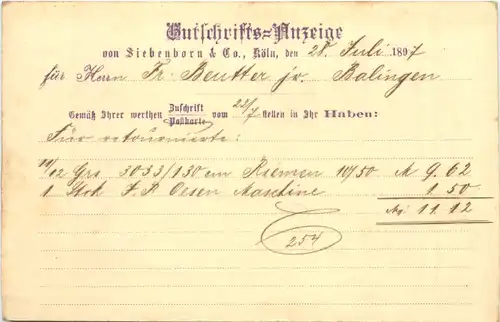 Gutschrifts-Anzeige
von Siebenborn & Co., Köln, den 28. Juli 1897
für Herrn Fr. Beutter jr. Balingen
Gemäß Ihrer werthen Zuschrift Postkarte vom 22/7 stellen in Ihr Haben:
Für retournierte:
11/12 Grs 3033/130 cm Riemen 10/50 M 9.62
1 Stck F. P. Oesen Maschine 1.50
M 11.12
254